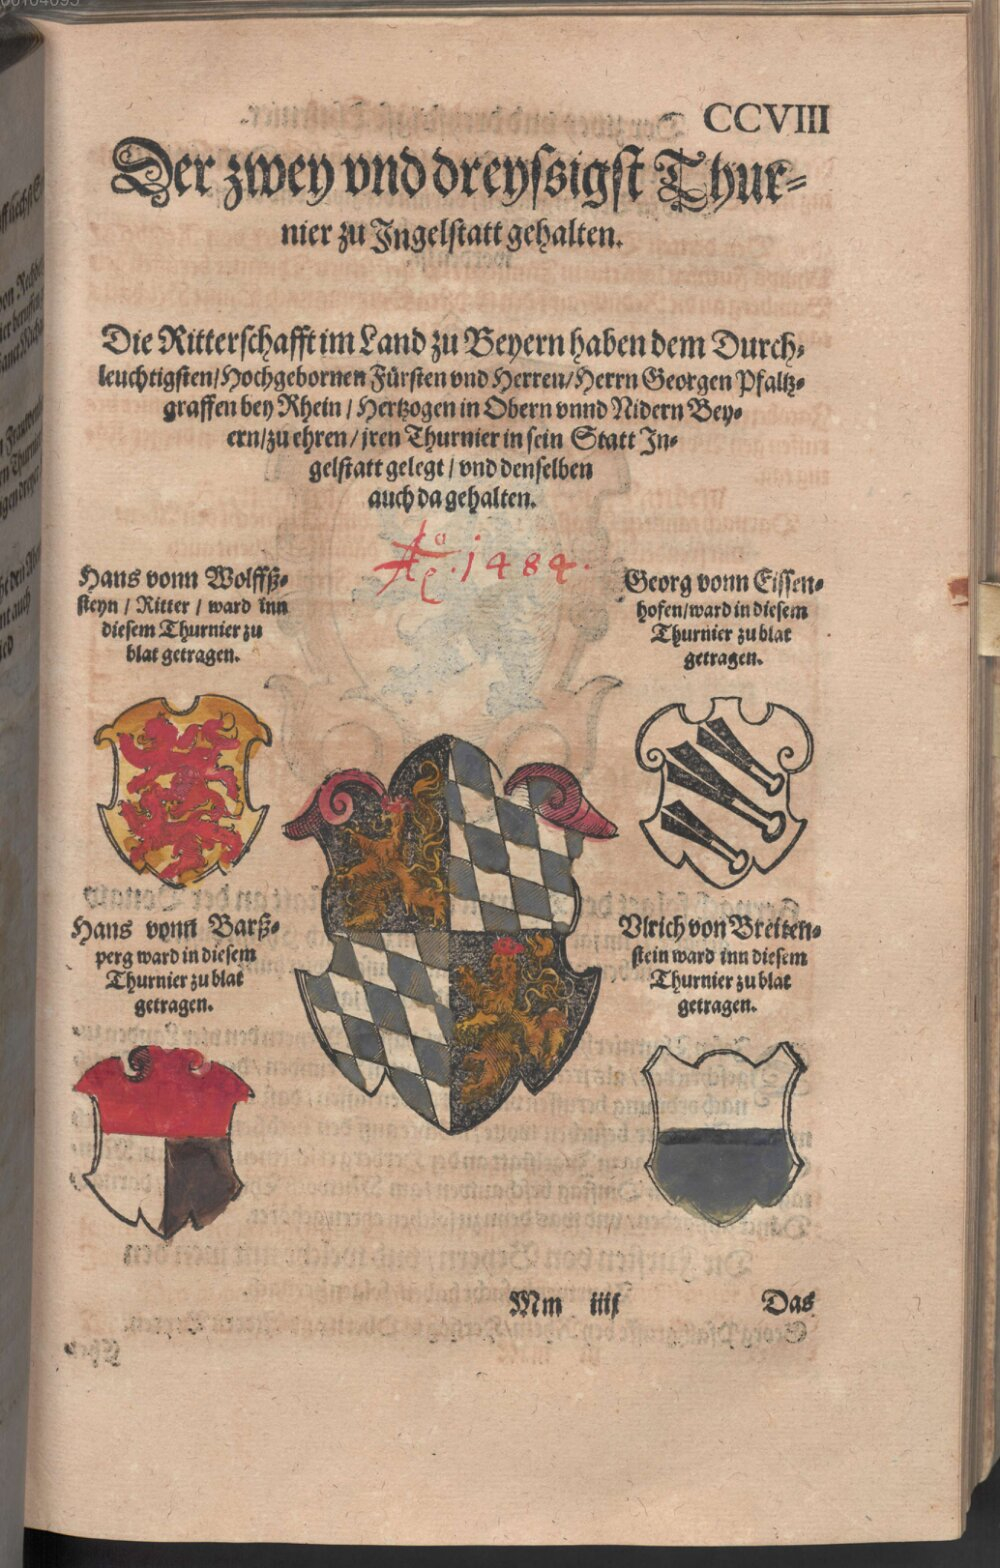 CCVIII
Der zwey vnd dreyſsigſt Thur⸗
nier zu Jngelſtatt gehalten.
Die Ritterſchafft im Land zu Beyern haben dem Durch⸗
leuchtigſten/Hochgebornen Fürſten vnd Herren/Herrn Georgen Pfaltz⸗
graffen bey Rhein / Hertzogen in Obern vnnd Nidern Bey⸗
ern/zu ehren/jren Thurnier in ſein Statt Jn⸗
gelſtatt gelegt / vnd denſelben
auch da gehalten.
1484.
Hans vonn Wolffß⸗
ſteyn / Ritter / ward inn
dieſem Thurnier zu
blat getragen.
Georg vonn Eiſſen⸗
hofen/ward in dieſem
Thurnier zu blat
getragen.
Hans vonn Barß⸗
perg ward in dieſem
Thurnier zu blat
getragen.
Vlrich von Breiten⸗
ſtein ward inn dieſem
Thurnier zu blat
getragen.
Mm iiij
Das